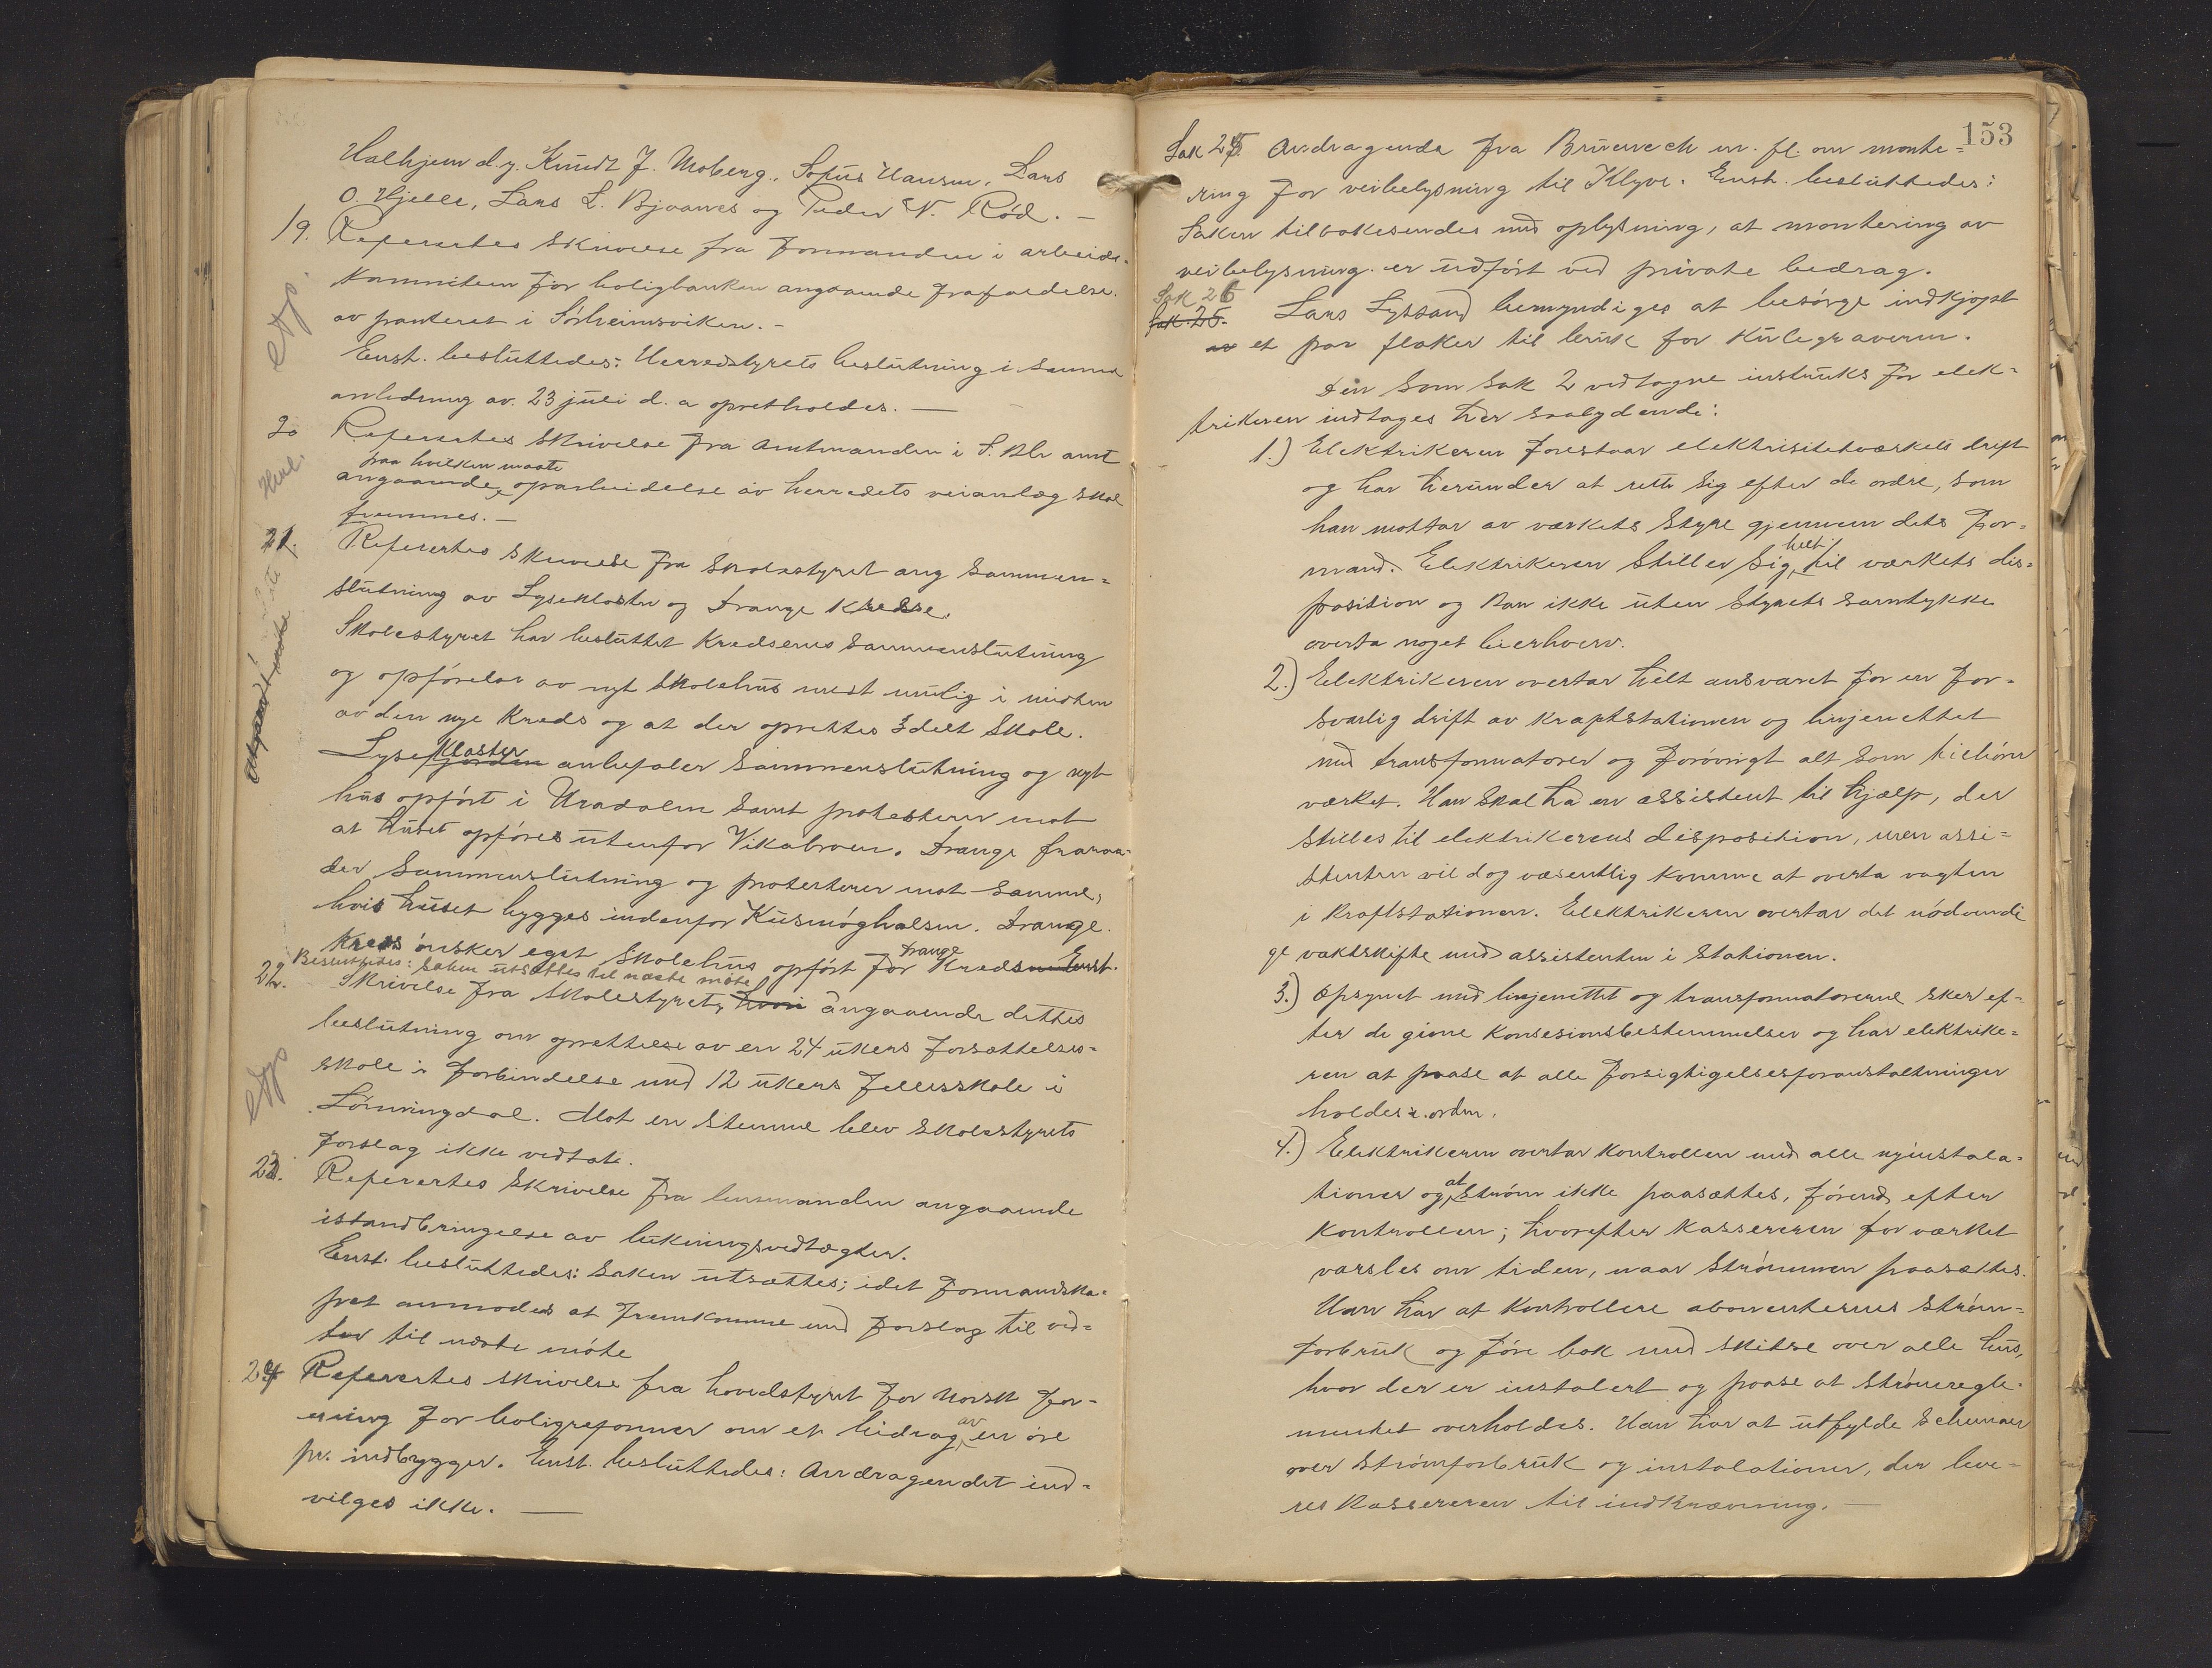 Halhjem d.y. Knudt J. Moberg, Sofus Hansen, Lars
O. Hjelle, Lars L. Bjaanes og Peder N. Röd. –
19. Referertes skrivelse fra formanden i arbeids-
komiteen for boligbanken angaaende frafaldelse
av panteret i Solheimsviken. –
Enst. besluttedes: Herredstyrets beslutning i samme
anledning av 23 juli d. a opretholdes. —
20 Referertes skrivelse fra Amtmanden i S. Bh amt
paa hvilken maate
angaaende oparbeidelse av herredets veianlæg skal
fremmes. –
21. Referertes skrivelse fra skolestyret ang sammen=
slutning av Lyseklostr og Drange kredse.
Skolestyret har besluttet kredsenes sammenslutning
og opförelse av nyt skolehus mest mulig i midten
av den nye kreds og at der oprettes 3delt skole.
Kloster
Lysefjorden anbefaler sammenslutning og nyt
hus opfört i Uradalen samt protesterer mot
at huset opföres utenfor Vikabroen. Drange fraraa-
der sammenslutning og protesterer mot samme,
hvis huset bygges indenfor Kusmöghalsen. Drange
Drange
kreds önsker eget skolehus opfört for kreds Enst.
Besluttedes: Saken utsættes til næste möte
22. Skrivelse fra Skolestyret, hvori angaaende dettes
beslutning om oprettelse av en 24 ukers forsættelses-
skole i forbindelse med 12 ukers fellesskole i
Lönningdal. Mot en stemme blev skolestyrets
forslag ikke vedtat.
23. Referertes skrivelse fra lensmanden angaaende
istandbringelse av lukningsvedtægter.
Enst. besluttedes: Saken utsættes; idet formandska-
pet anmodes at fremkomme med forslag til ved=
tær til næste möte
24 Referertes skrivelse fra hovedstyret for norsk for-
av
ening for boligreformer om et bidrag en öre
pr. indbygger. Enst. besluttedes: Andragendet ind-
vilges ikke. —
Exp.
Hvil.
Exp
153
Sak 25. Andragende fra m. fl. om monte=
ring for veibelysning til Klyve. Enst. besluttedes:
Saken tilbakesendes med oplysning, at montering av
veibelysning er udfört ved private bedrag.
Sak 26
Sak 25. Lars Lyssand bemyndiges at besörge indkjöpt
av et par flaker til bruk for Kulegraveren.
Den som sak 2 vedtagne instruks for elek=
trikeren indtages her saalydende:
1.) Elektrikeren forestaar elektrisitetsverkets drift
og har herunder at rette sig efter de ordre, som
han mottar av verkets styre gjennem dets for=
helt
mand. Elektrikeren stiller sig til verkets dis=
position og kan ikke uten styrets samtykke
overta noget bierhverv.
2.) Elektrikeren overtar helt ansvaret for en for=
svarlig drift av kraftstationen og linjenettet
med transformatorer og forövrigt alt som tilhörer
verket. Han skal ha en assistent til hjælp, der
stilles til elektrikerens disposition, men assi=
stenten vil dog væsentlig komme at overta vagten
i Kraftstationen. Elektrikeren overtar det nödvendi
ge vaktskifte med assistenten i stationen.
3.) Opsynet med linjenettet og transformatorerne sker ef=
ter de givne konsesionsbestemmelser og har elektrike=
ren at paase at alle forsigtigelsesforanstaltninger
holdes i orden.
4.) Elektrikeren overtar kontrollen med alle nyinstala=
at
tioner og ström ikke paasættes, förend efter
kontrollen; hvorefter kassereren for værket
varsles om tiden, naar strömmen paasættes.
Han har at kontrollere abonenternes ström=
forbruk og före bok med skitse over alle hus,
hvor der er instalert og paase at strömregle-
mentet overholdes. Han har at utfylde schemaer
over strömforbruk og instalationer, der leve=
res Kassereren til indkrævning. —